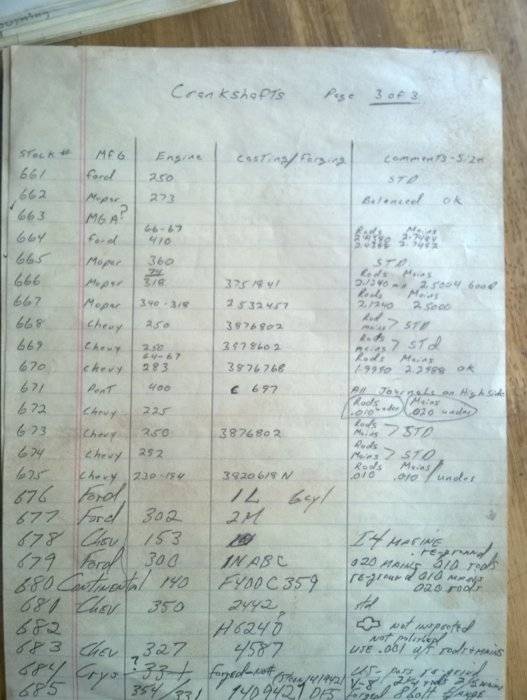 Crankshafts Page 3 of 3
Stock # MFG Engine Casting/Forging Comments-Size
661 Ford 250 STD
662 Mopar 273 Balanced ok
663 MGA?
664 Ford 66-67 410 Rods Mains
665 Mopar 360 STD
666 Mopar 74 318 3751841 Rods Mains 2.1240 2.5004 good
667 Mopar 340-318 2532457 Rods Mains 2.1240 2.5000
668 Chevy 250 3876802 Rod mains > STD
669 Chevy 250 3878602 Rods mains > STD
670 Chevy 64-67 283 3876768 Rods Mains 1.9990 2.2988 ok
671 Pont 400 C 697 All Journals on High side
672 Chevy 225 Rods .010 under Mains .020 under
673 Chevy 250 3876802 Rods Mains > STD
674 Chevy 292 Rods Mains > STD
675 Chevy 230-194 3920618 N Rods .010 Mains .010 / under
676 Ford 1L 6cyl
677 Ford 302 2M
678 Chev 153 I4 MARINE
679 Ford 300 1NABC reground 020 MAINS 010 RODS
680 Continental 140 F400C359 reground 010 mains 020 RODS
681 Chev 350 2442 std
682 H6240 not inspected not polished
683 Chev 327 4587 USE .001 u/s rods & mains
684 Crys ? 331
685 354/331